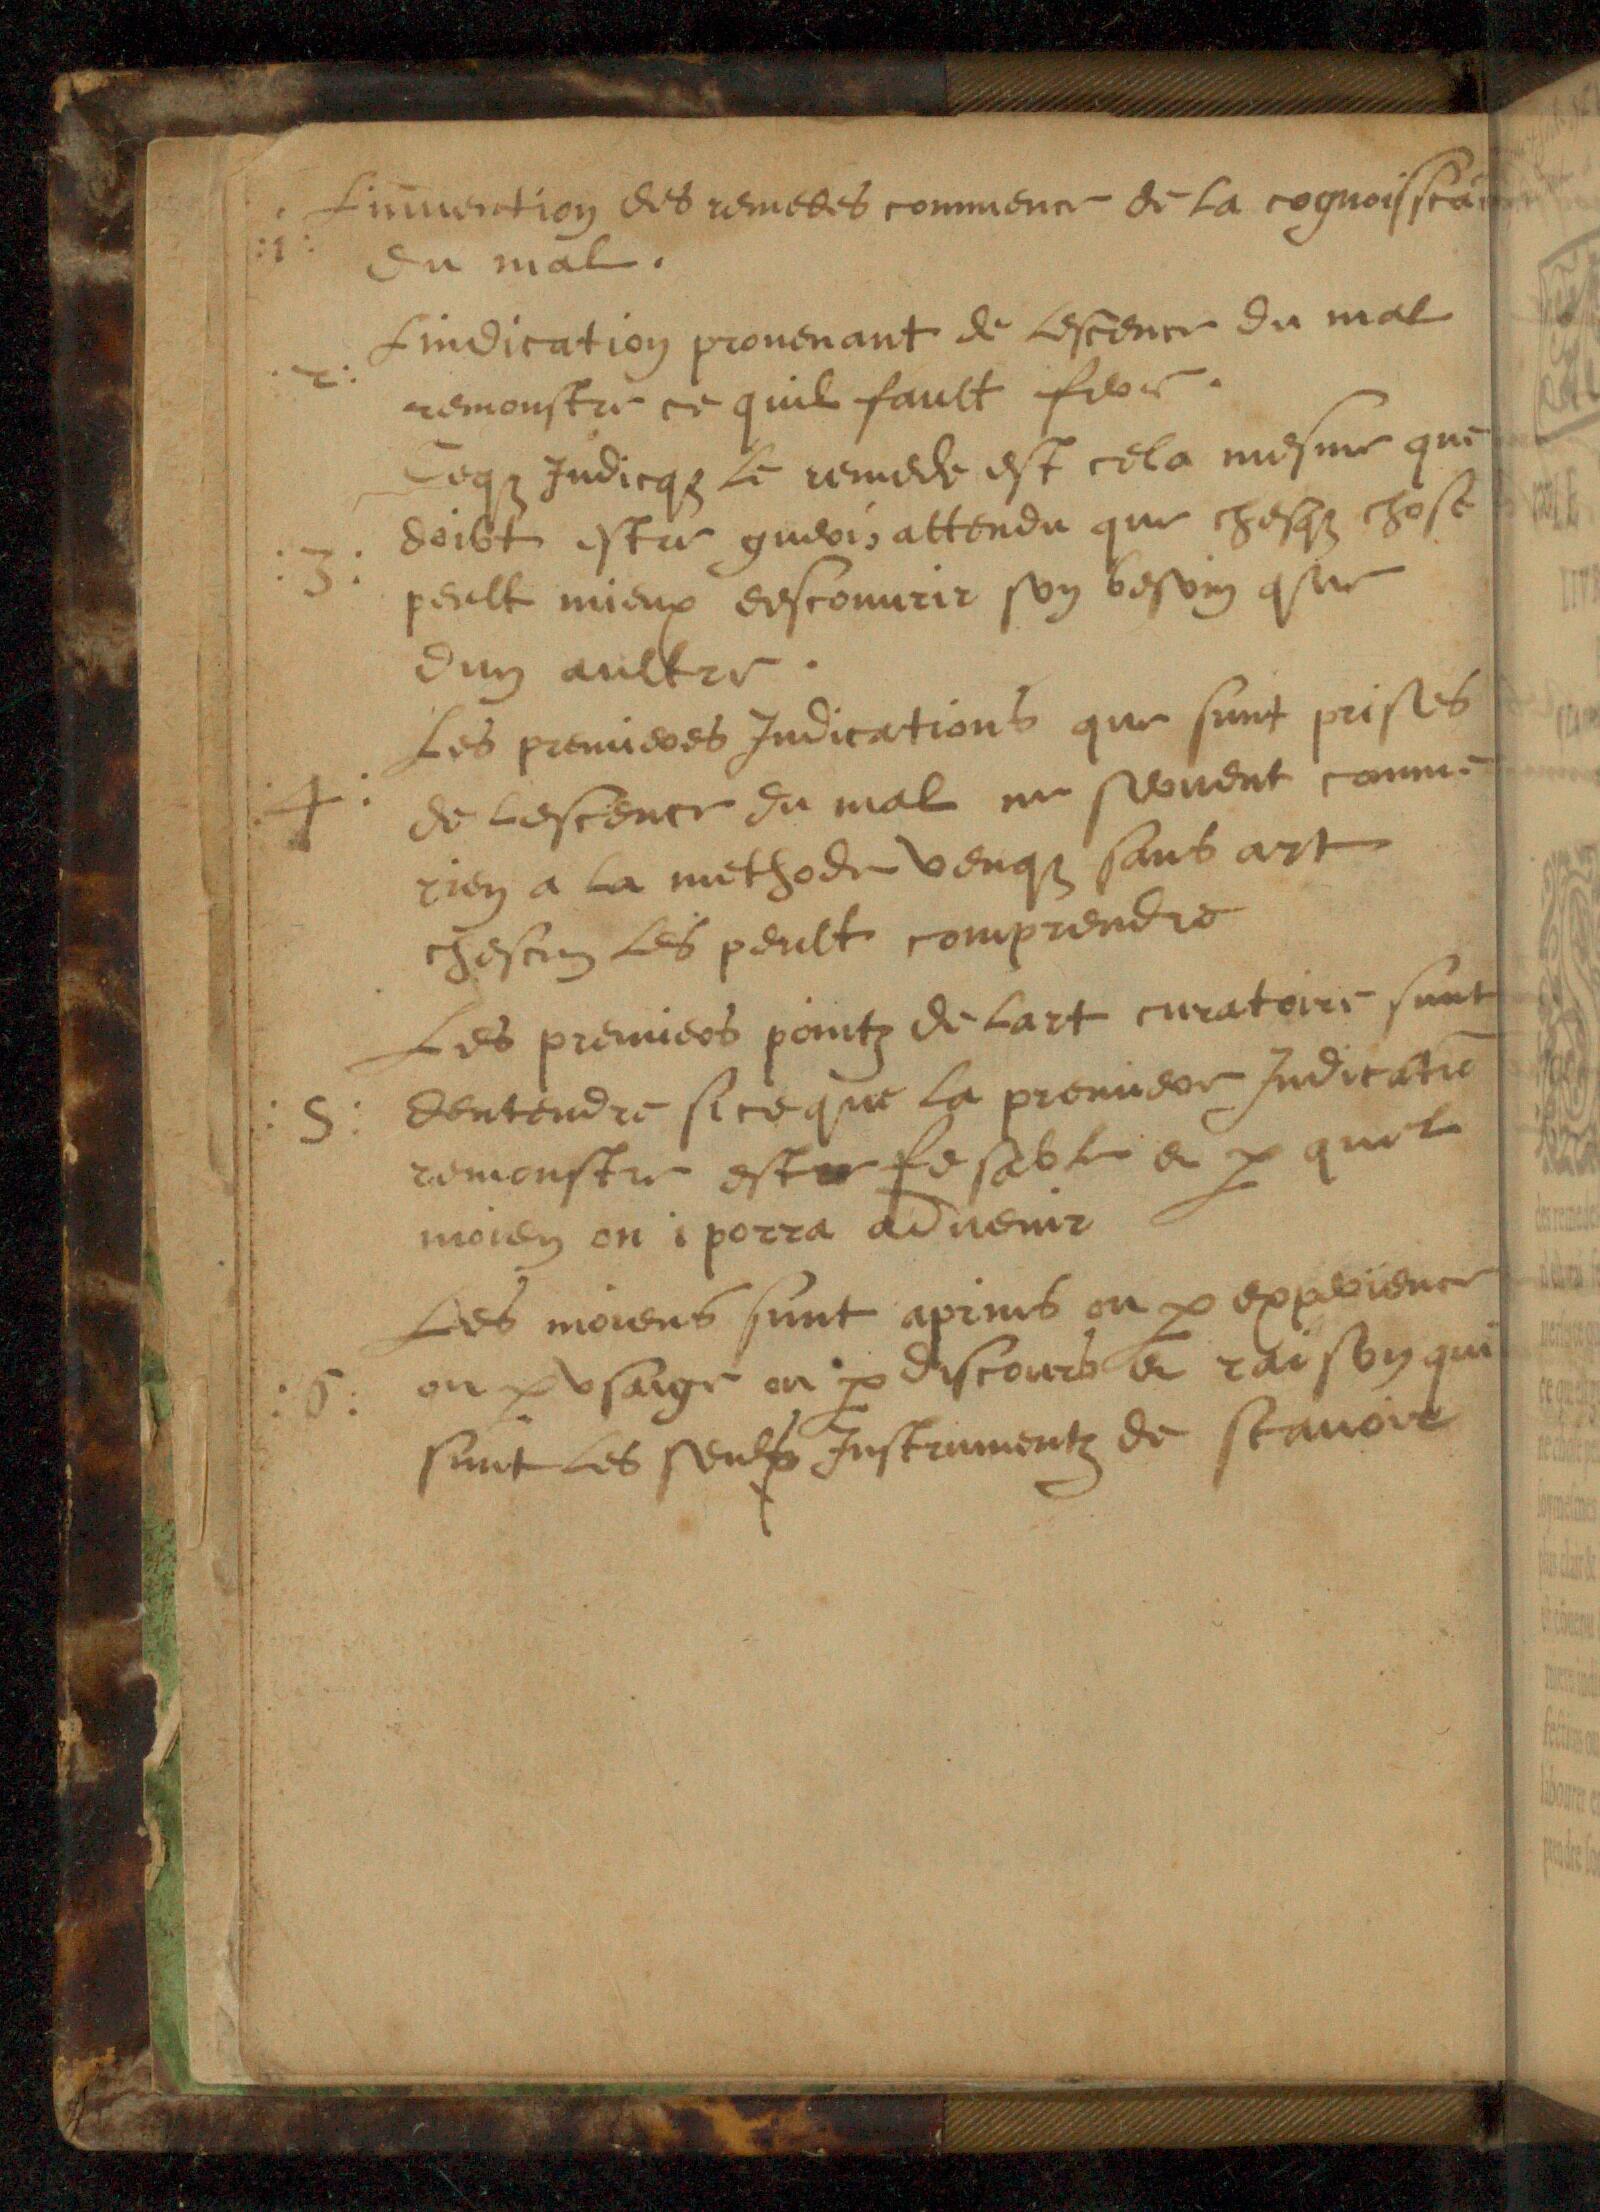 :1: Linuention des remedes commence de la cognoissca
du mal.
:2: Lindication prouenant de lescence du mal
remonstre ce quil fault fere.
Ceq3 Indicq3 le remede est cela mesme que
:3: doibt estre gueri attendu que chesq3 chose
peult mieux descouurir son besoin que
dun aultre.
Les premieres Indications que sunt prises
:4: de lescence du mal ne seruent comme
rien a la methode veuq3 sans art
chescun les peult comprendre
Les premiers pointz de lart curatoire sunt
:5: dentendre si ce que la premiere Indicatiō
remonstre est fesable et p quel
moien on i porra aduenir
Les moiens sunt aprins ou p experience
:6: ou p vsaige ou p discours et raison qui
sunt les seulz Instrumentz de scauoir